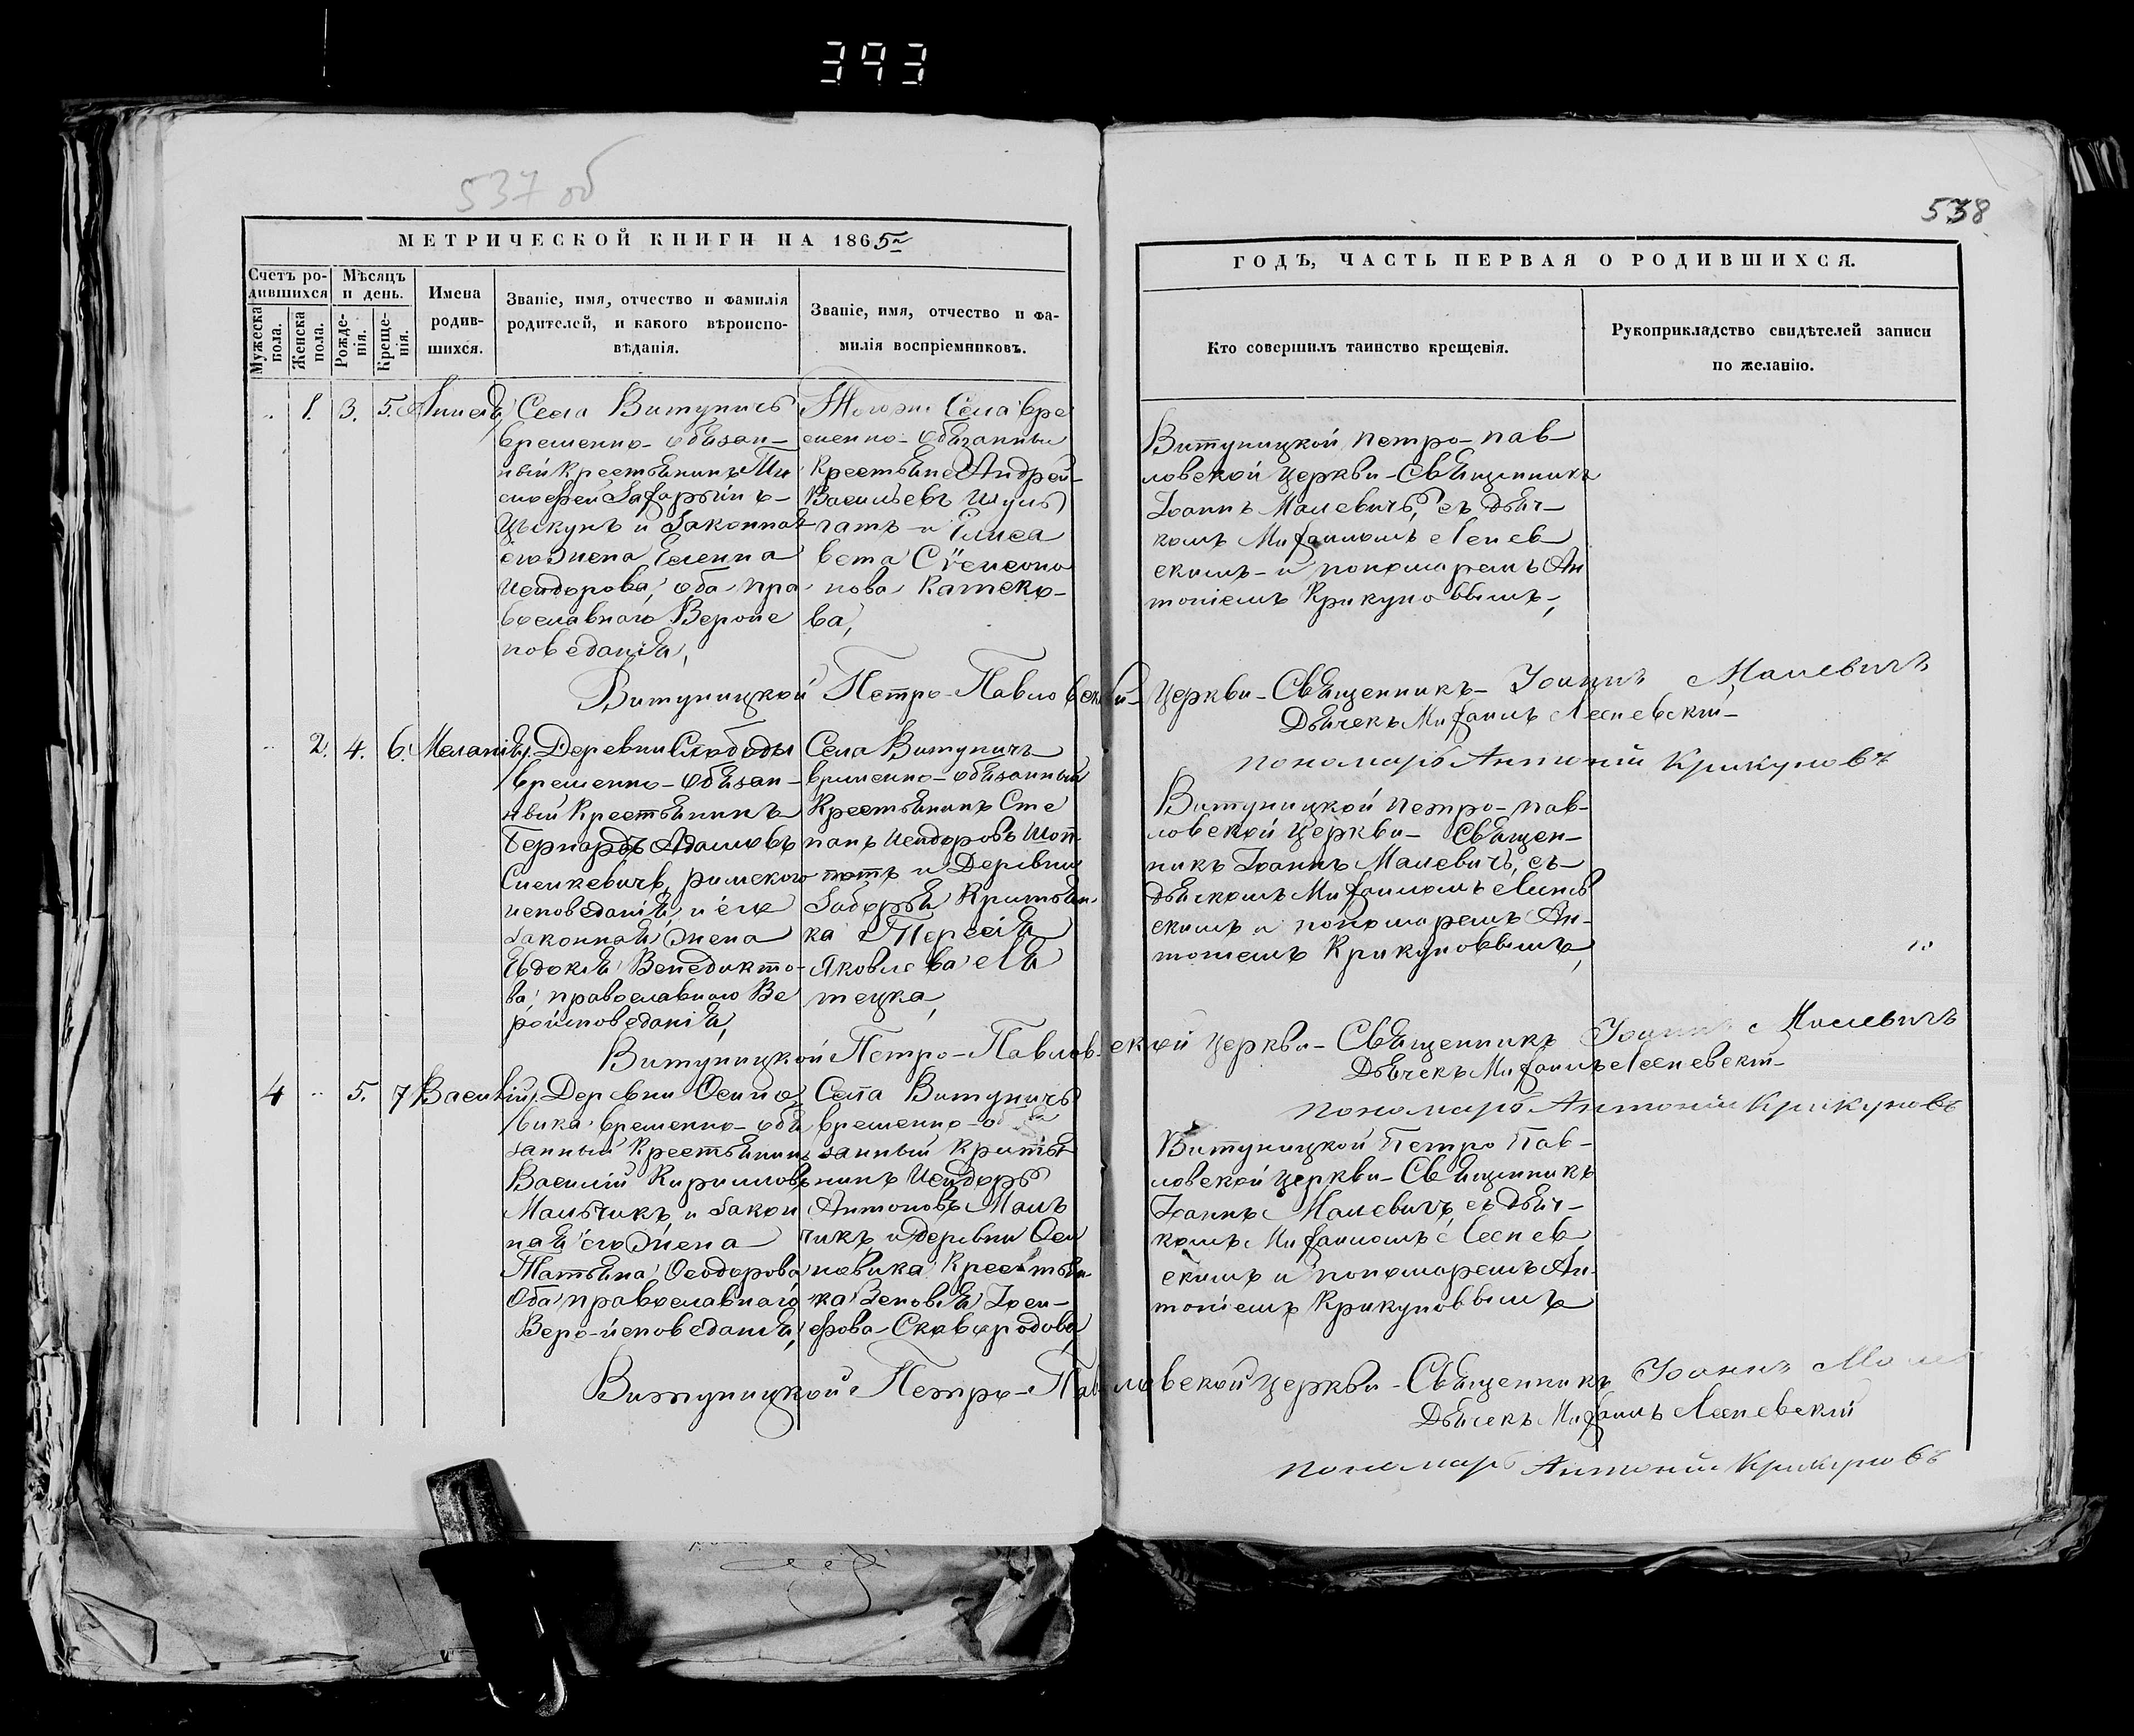 393
537 об
538
МЕТРИЧЕСКОЙ КНИГИ НА 1865
Счетъ ро-
дившихся
Мѣсяцъ
и день.
Мужеска
пола.
Женска
пола.
Рожде-
нія.
Креще-
нія.
Имена
родив-
шихся.
Званіе, имя, отчество и фамилія
родителей, и какого вѣроиспо-
вѣданія.
Званіе, имя, отчество и фа-
милія воспріемниковъ.
ГОДЪ, ЧАСТЬ ПЕРВАЯ О РОДИВШИХСЯ.
Кто совершилъ таинство крещенія.
Рукоприкладство свидѣтелей записи
по желанію.
1. 3. 5.
Села Витуничъ
временно-обязан-
ный крестьянинъ Ти
мофей Захарьинъ
Цыкунъ и законная
его жена Еленна
Исидорова, оба пра
вославного Вероис
поведанія,
Тогоже Села вре
менно-обязанный
крестьяне Андрей
Васильевъ Шуль
гатъ и Елиса
вета
нова
ва,
Витуницкой петро-пав-
ловской церкви-Священникъ
Іоаннъ Малевичъ, съ дьяч-
комъ Михаиломъ Леснев
скимъ-и пономаремъ Ан
тоніемъ Крикуновымъ,
Витуницкой Петро-Павловской Церкви-Священникъ-Іоаннъ Малевичъ
Дьячекъ Михаилъ Лесневскій-
пономарь Антоній Крикуновъ
2. 4. 6. Меланія,
Деревни Слободы
временно-обязан-
ный крестьянинъ
Бернардъ Адамовъ
Сченкевичъ, римского
исповеданія, и его
законная жена
Евдокія Венедикто-
ва, православного Ве
роисповеданія,
Села Витуничъ
временно-обязанный
Крестьянинъ Сте
панъ Исидоровъ
и Деревни
Заборья
ка Терессія
Яковлева Ля
тецка,
Витуницкой петро-пав-
ловской церкви-Священ-
никъ Іоаннъ Малевичъ, съ
дьячкомъ Михаиломъ
скимъ и пономаремъ Ан-
тоніемъ Крикуновымъ,
Витуницкой Петро-Павловской церкви-Священникъ Іоаннъ Малевичъ
Дьячекъ Михаилъ Лесневскій-
пономарь Антоній Крикуновъ
4 5. 7 Василій,
Деревни Осино
вика временно-обя
занный Крестьянинъ
Василій Кириловъ
Мальчикъ, и закон
ная его жена
Татьяна Феодорова
Оба православного
Веро-исповеданія,
Села Витуничъ
временно-обя
занный
нинъ Исидоръ
Антоновъ Маль
чикъ и деревни Оси
новика Крестьян-
ка Зеновія Іоси-
фова-Сковородова,
Витуницкой Петро Пав-
ловской церкви-Священникъ
Іоаннъ Малевичъ, съ дьяч-
комъ Михаиломъ Леснев
скимъ и пономаремъ Ан-
тоніемъ Крикуновымъ
Витуницкой Петро-Павловской церкви-Священникъ Іоаннъ
Дьячекъ Михаилъ Лесневскій
пономарь Антоній Крикуновъ